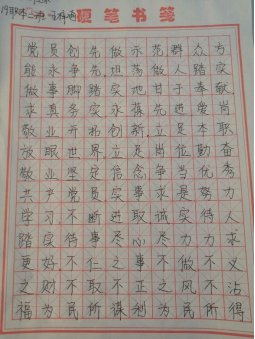 硬笔书笺
党员创先做示范群众方
能永争先坦荡做人踏实
做事脚踏实地甘于奉献
求真务实永葆先进爱岗
敬业开拓创新立足本职
放眼世界立足岗位勤奋
敬业坚定信念争当优秀
共产党员实事求是努力
学习不断进取诚实待人
踏实待事尽心尽力力求
更好不仁之事不做不义
之财不取不正之风不沾
福为民所谋利为民所得